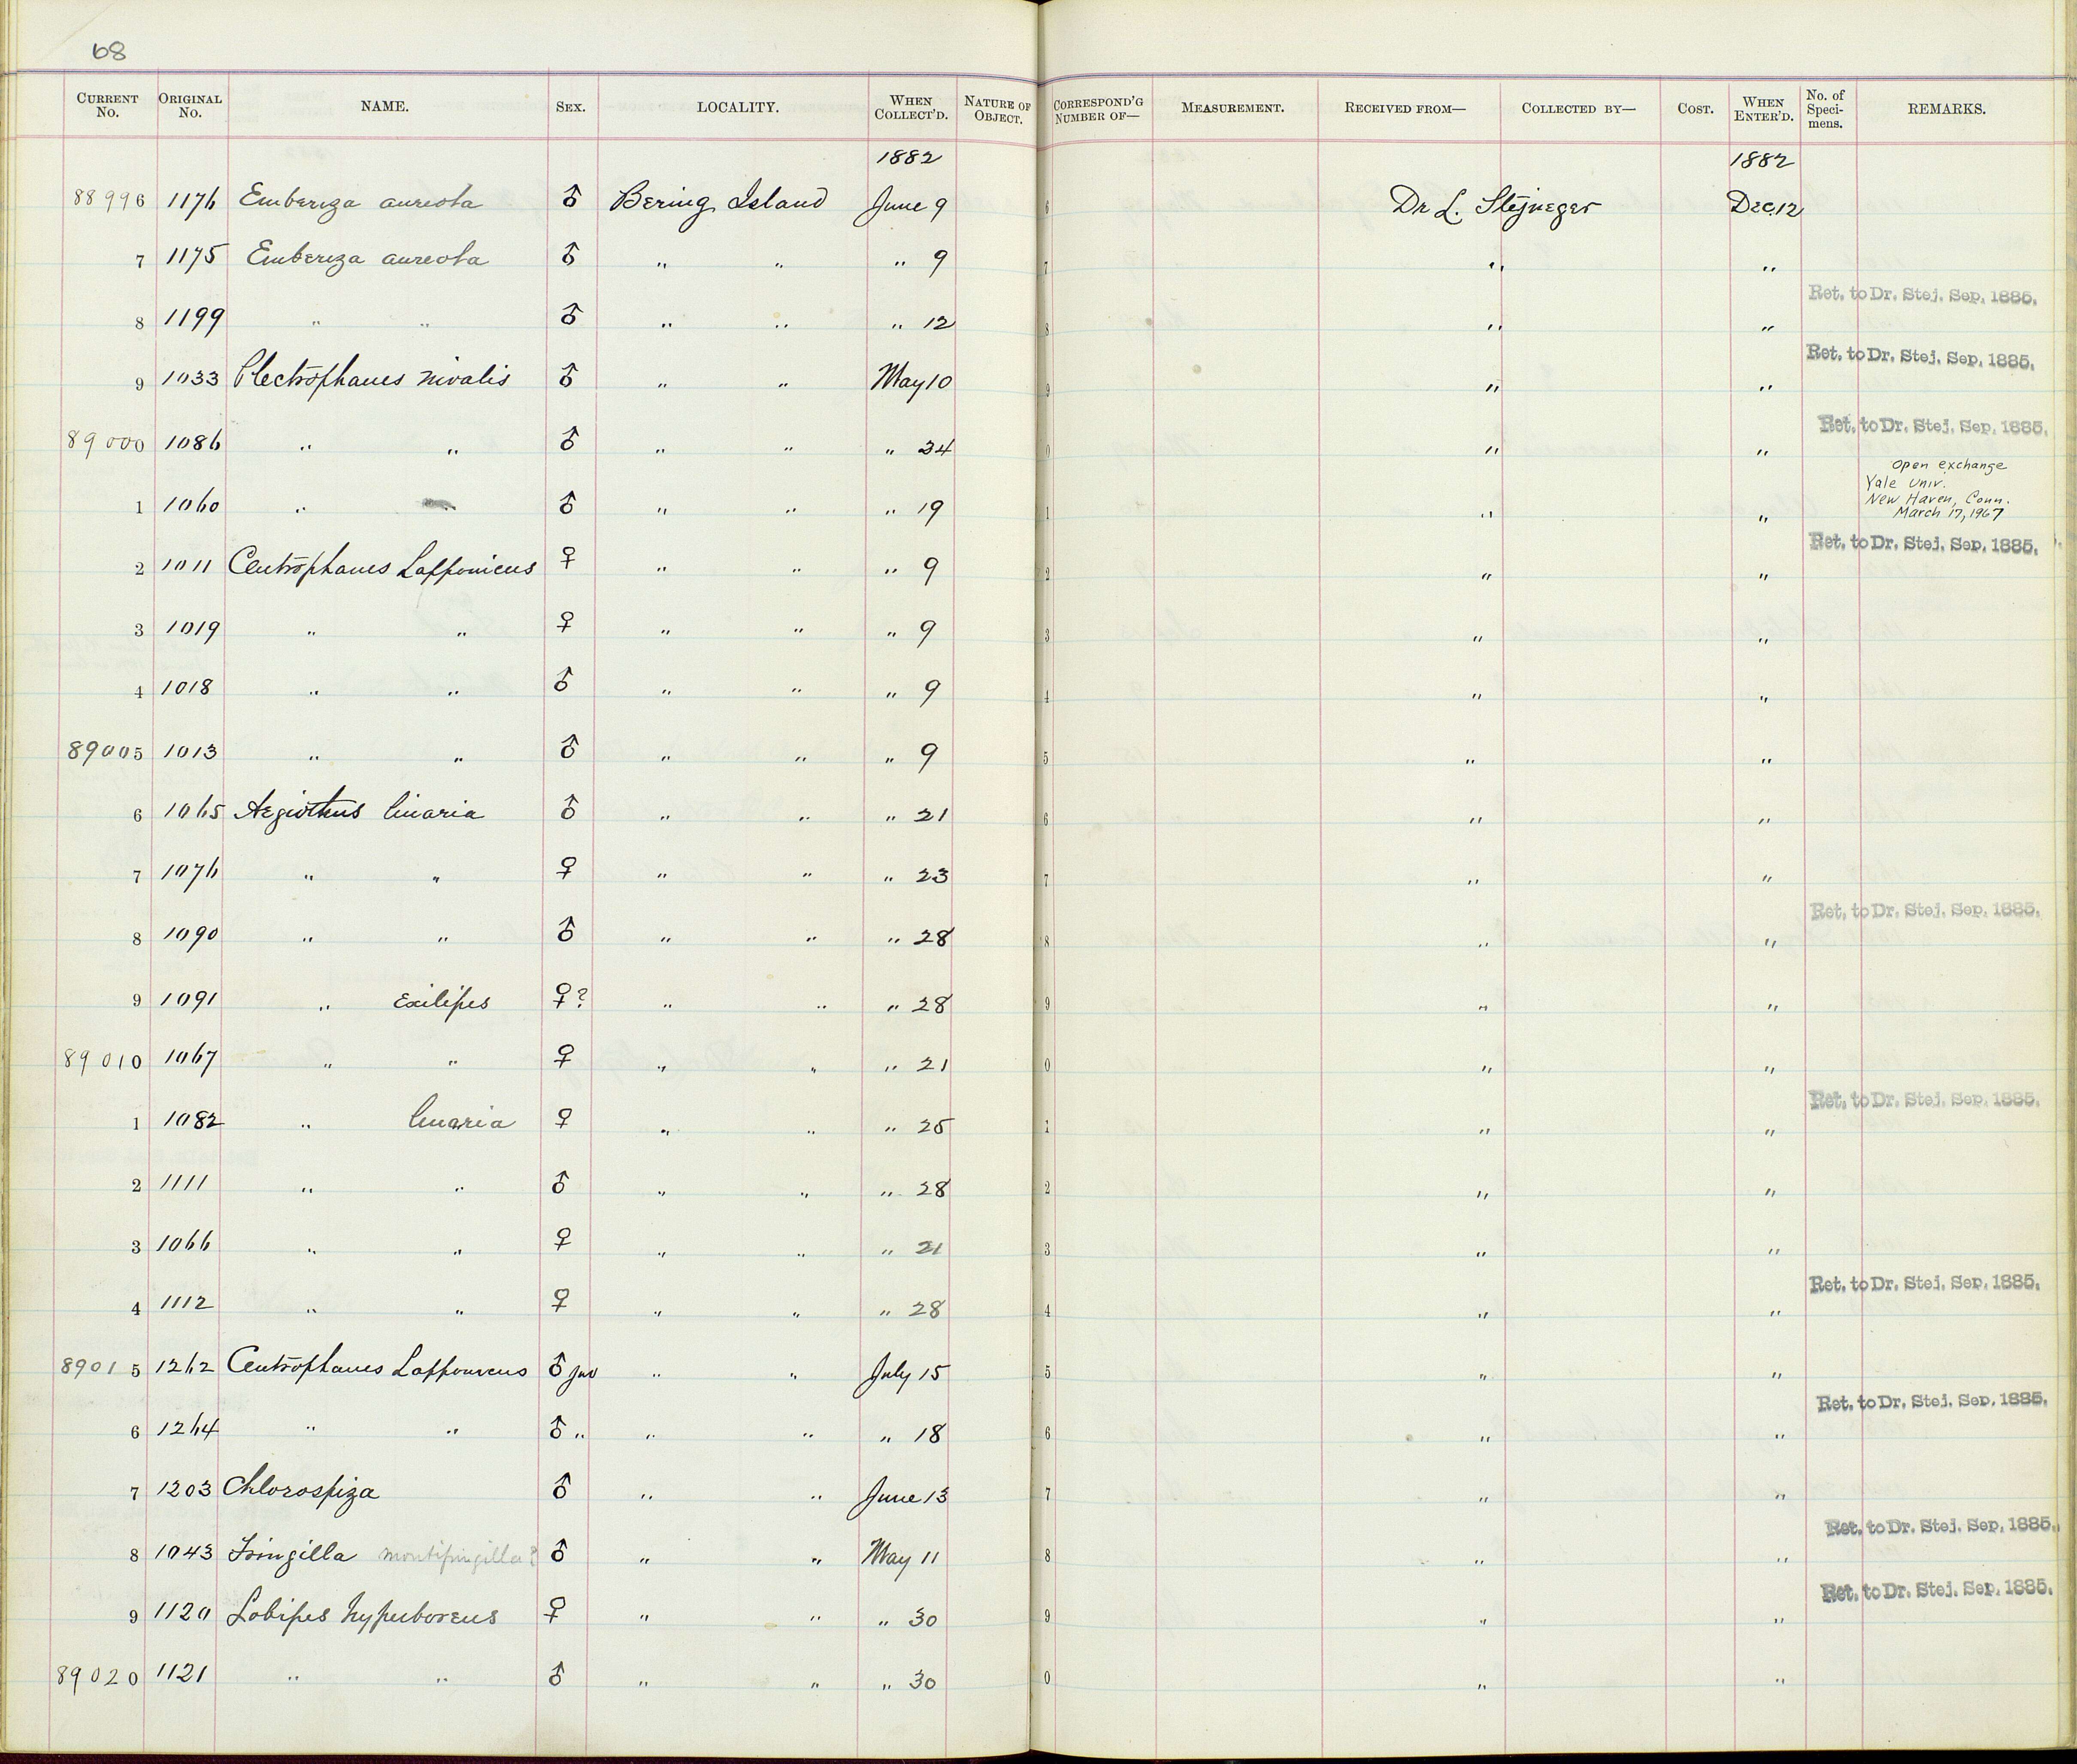 68
CURRENT No. ORIGINAL No. NAME. SEX. LOCALITY. WHEN COLLECT'D. NATURE OF OBJECT. CORRESPOND'G NUMBER OF— MEASUREMENT. RECEIVED FROM— COLLECTED BY— COST. WHEN ENTER'D. No. of Speci-mens. REMARKS.
1882 1882
88996 1176 Emberiza aureola ♂ Bering Island June 9 6 Dr L. Stejneger Dec. 12
7 1175 Emberiza aureola ♂ " " " 9 7 " "
Ret. to Dr. Stej. Sep. 1885.
8 1199 " " ♂ " " " 12 8 " "
Ret. to Dr. Stej. Sep. 1885.
9 1033 Plectrophanes nivalis ♂ " " May 10 9 " "
Ret. to Dr. Stej. Sep. 1885.
89000 1086 " " ♂ " " " 24 0 " "
Open exchange
Yale Univ.
New Haven, Conn.
March 17, 1967
1 1060 " " ♂ " " " 19 1 " "
Ret. to Dr. Stej. Sep. 1885.
2 1011 Centrophanes Lapponicus ♀ " " " 9 2 " "
3 1019 " " ♀ " " " 9 3 " "
4 1018 " " ♂ " " " 9 4 " "
89005 1013 " " ♂ " " " 9 5 " "
6 1065 Aegiothus linaria ♂ " " " 21 6 " "
7 1076 " " ♀ " " " 23 7 " "
Ret. to Dr. Stej. Sep. 1885.
8 1090 " " ♂ " " " 28 8 " "
9 1091 " Exilipes ♀? " " " 28 9 " "
89010 1067 " " ♀ " " " 21 0 " "
Ret. to Dr. Stej. Sep. 1885.
1 1082 " linaria ♀ " " " 25 1 " "
2 1111 " " ♂ " " " 28 2 " "
3 1066 " " ♀ " " " 21 3 " "
Ret. to Dr. Stej. Sep. 1885.
4 1112 " " ♀ " " " 28 4 " "
89015 1262 Centrophanes Lapponicus ♂ juv " " July 15 5 " "
Ret. to Dr. Stej. Sep. 1885.
6 1264 " " ♂ " " " " 18 6 " "
7 1203 Chlorospiza ♂ " " June 13 7 " "
Ret. to Dr. Stej. Sep. 1885.
8 1043 Fringilla montifringilla? ♂ " " May 11 8 " "
Ret. to Dr. Stej. Sep. 1885.
9 1120 Lobipes hyperboreus ♀ " " " 30 9 " "
89020 1121 " " ♂ " " " 30 0 " "